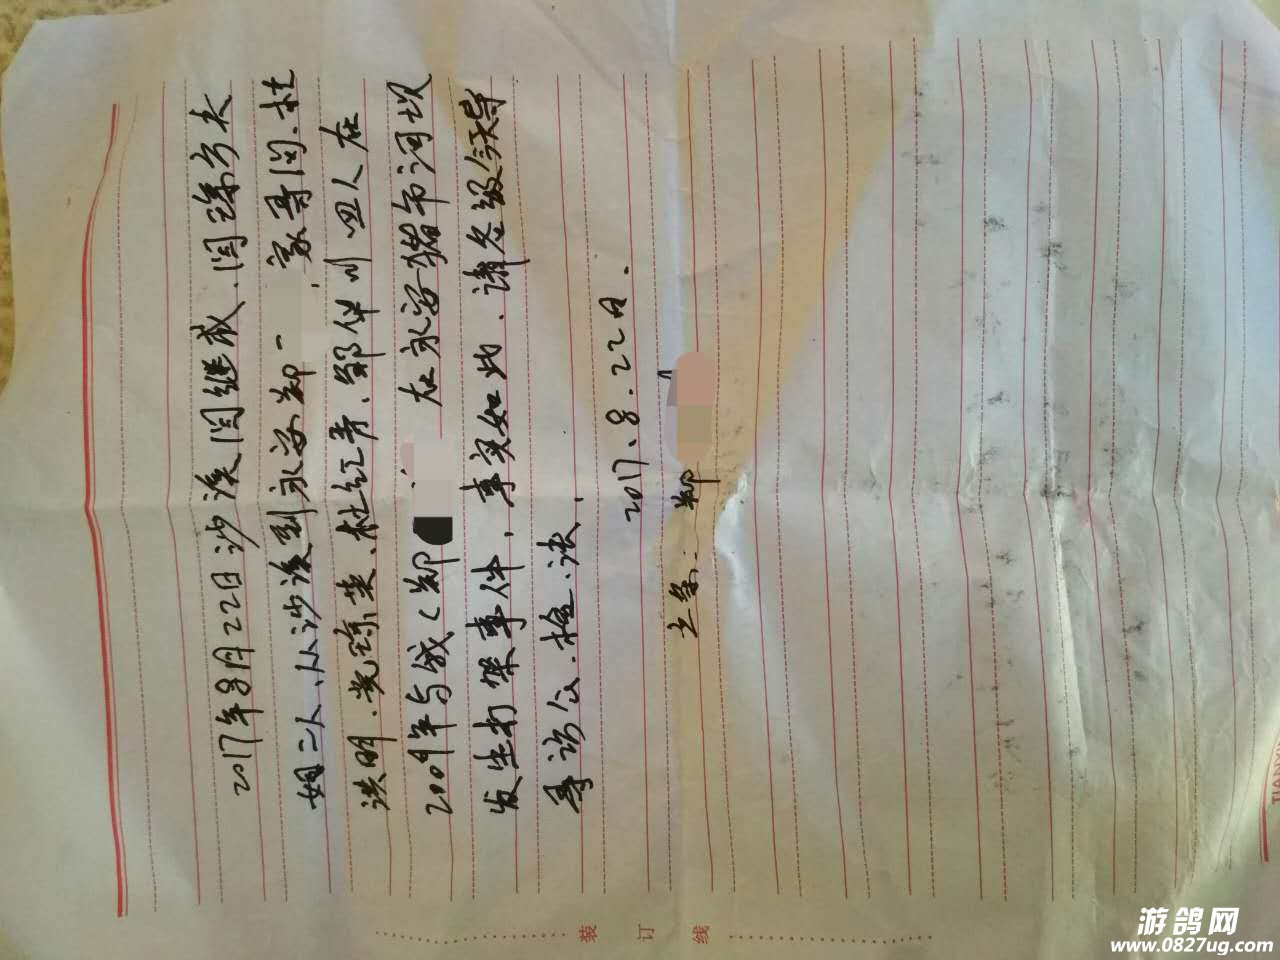 2017年8月22日沙溪闫继成、闫绵芳夫
妇二人、从沙溪到永安郑一 家寻问.杜
洪明.党琼英、杜红青、邹华川四人在
2009年与我（郑 在永安猪市河坝
发生打架事件，事实如此、请各级领导
寻访公.检.法.
2017.8.22日.
立条：郑
装 订 线
游鸽网
www.0827ug.com